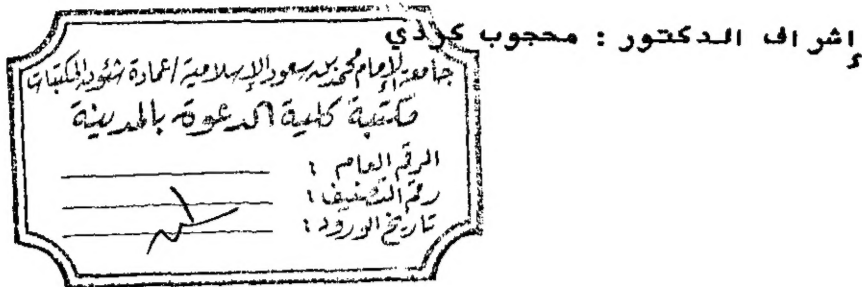 إشراف الدكتور : محجوب كردي
جامعة الإمام محمد بن سعود الإسلامية / عمادة شئون المكتبات
مكتبة كلية الدعوة بالمدينة
الرقم العام :
رقم التصنيف :
تاريخ الورود :